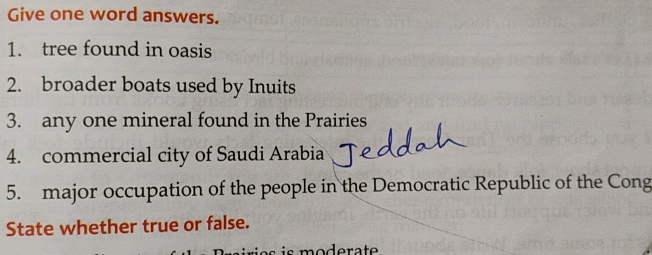 Give one word answers.
1. tree found in oasis
2. broader boats used by Inuits
3. any one mineral found in the Prairies
4. commercial city of Saudi Arabia Jeddah
5. major occupation of the people in the Democratic Republic of the Cong
State whether true or false.
Prairies is moderate.